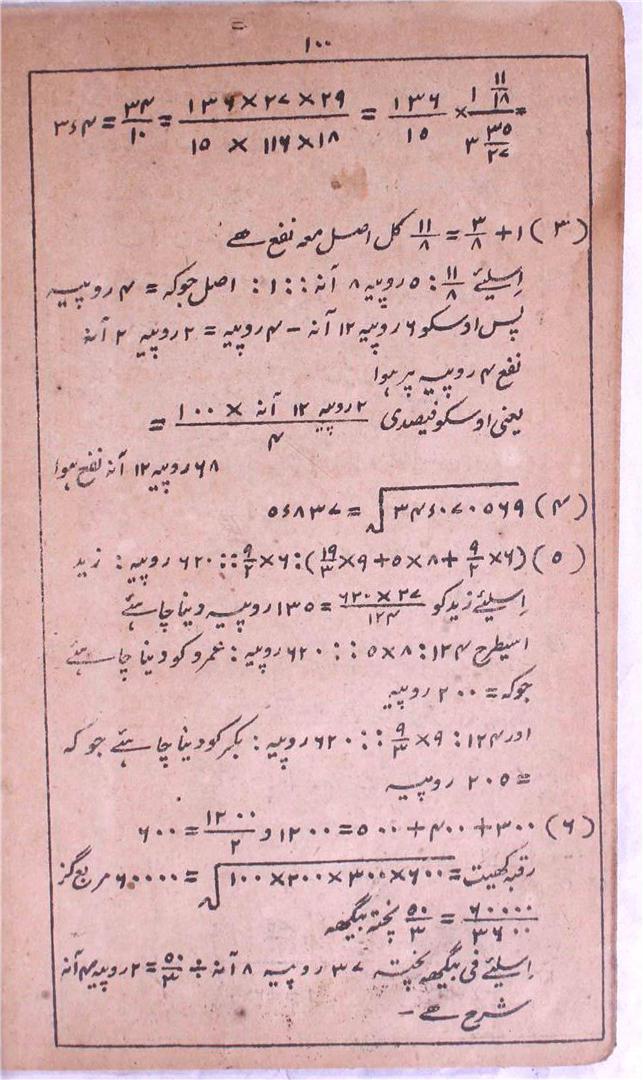 ۱۰۰
۳٤۴ = ۳۴/۱۰ = ۱۳۶ × ۲۷ × ۲۹ / ۱۵ × ۱۱۶ × ۱۸ = ۱۳۶/۱۵ × ۱ ۱۱/۱۸ / ۳ ۳۵/۲۷ =
(۳) ۱ + ۳/۸ = ۱۱/۸ کل اصل معہ نفع ہے
اسلئے ۱۱/۸ : ۵ روپیہ ۸ آنہ :: ۱ : اصل جوکہ = ۴ روپیہ
پس اوسکو ۶ روپیہ ۱۲ آنہ - ۴ روپیہ = ۲ روپیہ ۲ آنہ
نفع ۴ روپیہ پر ہوا
یعنی اوسکو فیصدی ۲ روپیہ ۱۲ آنہ × ۱۰۰ / ۴ =
۶۸ روپیہ ۱۲ آنہ نفع ہوا
(۴) √۳۴٤۰۷۰۵۶۹ = ۵٤۸۳۷
(۵) (۶ × ۹/۲ + ۸ × ۵ + ۹ × ۱۹/۳) : ۶ × ۹/۲ :: ۶۲۰ روپیہ : زید
اسلئے زید کو ۶۲۰ × ۲۷ / ۱۲۴ = ۱۳۵ روپیہ دینا چاہئے
اسیطرح ۱۲۴ : ۸ × ۵ :: ۶۲۰ روپیہ : عمرو کو دینا چاہئے
جوکہ = ۲۰۰ روپیہ
اور ۱۲۴ : ۹ × ۹/۳ :: ۶۲۰ روپیہ : بکر کو دینا چاہئے جو کہ
= ۲۰۵ روپیہ
(۶) ۳۰۰ + ۴۰۰ + ۵۰۰ = ۱۲۰۰ و ۱۲۰۰/۲ = ۶۰۰
رقبہ کھیت = √۶۰۰ × ۳۰۰ × ۲۰۰ × ۱۰۰ = ۶۰۰۰۰ مربع گز
۶۰۰۰۰/۳۶۰۰ = ۵۰/۳ پختہ بیگھہ
اسلئے فی بیگھہ پختہ ۳۷ روپیہ ۸ آنہ ÷ ۵۰/۳ = ۲ روپیہ ۴ آنہ
شرح ہے -